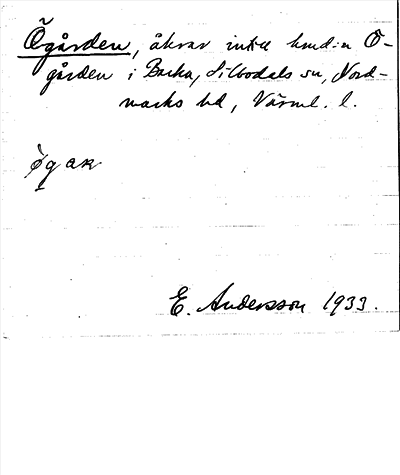 Ögården, åkrar intill hmd:n Ö-
gården i Backa, Silbodals sn, Nord-
marks hd, Värml. l.
E. Andersson 1933.